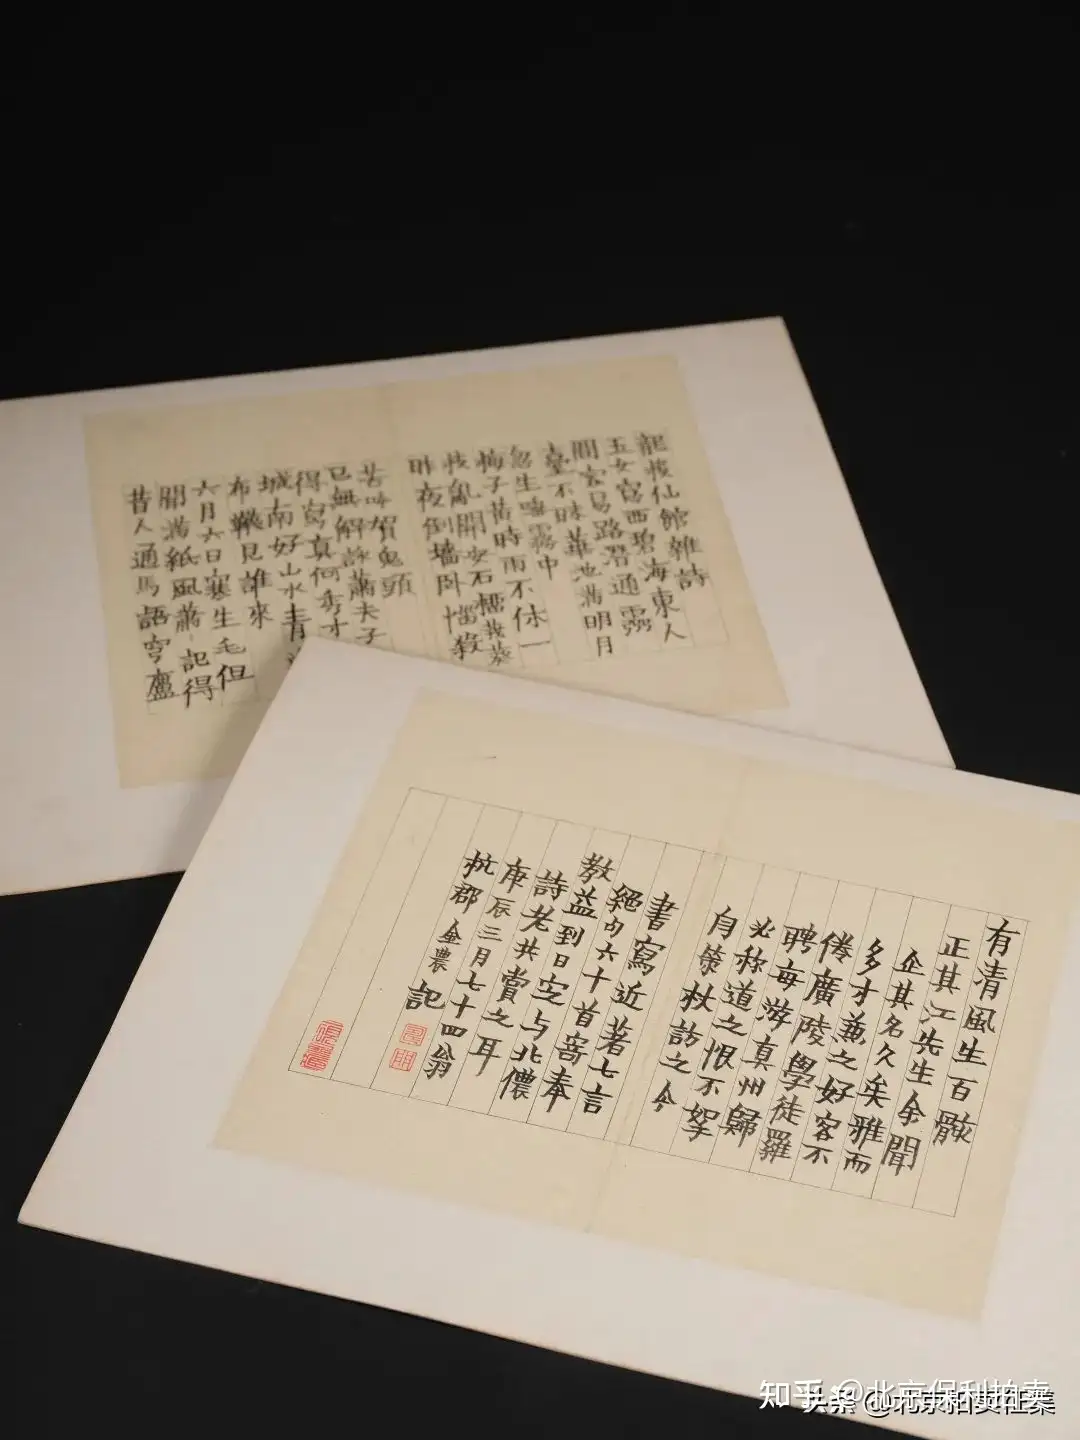 龍梭仙館雜詩
玉女窗西碧海東人
間宏易路潛通
臺不昧華池滿明月
忽生噀霧中
梅子黃時雨不休一
枝亂開安石榴我葵
昨夜倒墻卧惱殺
苦吟賀鬼頭
已無解詠蕭夫子
得寫真何秀才
城南好山水青
布襪見誰來
六月六日寒生毛但
開滿紙風蕭記得
昔人通馬語穹廬
有清風生百骸
正其江先生余聞
企其名久矣雅而
多才兼之好客不
倦廣陵學徒羅
聘每游真州歸
必稱道之恨不挐
舟策杖訪之今
書寫近著七言
絕句六十首寄奉
教益到日定与北儂
詩老共賞之耳
庚辰三月七十四翁
杭郡金農記
知乎 @北京保利拍卖
头条 @北京拍卖征集